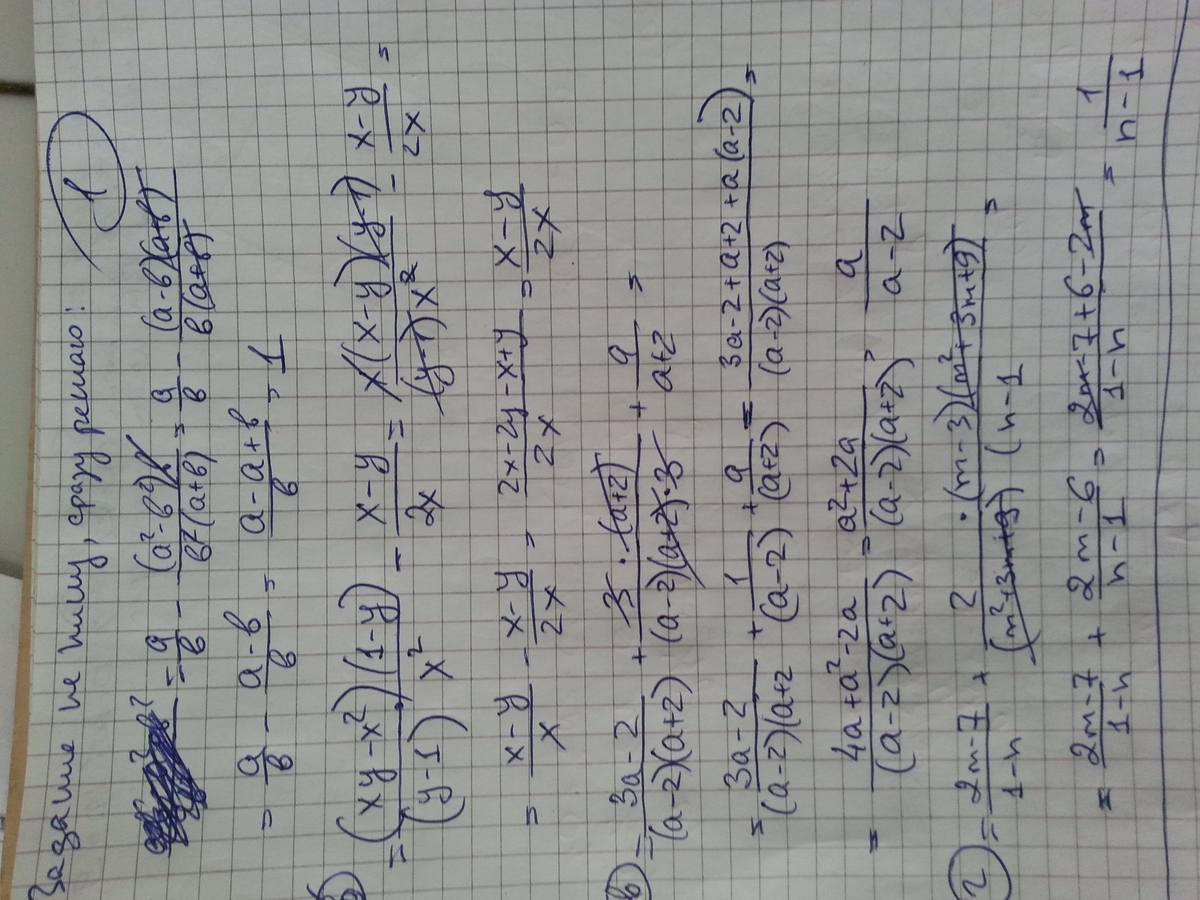 Задание не пишу, сразу решаю: 1
= a/b - (a²-b²)b/b²(a+b) = a/b - (a-b)(a+b)/b(a+b)
= a/b - a-b/b = a-a+b/b = 1
= (xy-x²)(1-y)/(y-1)x² - x-y/2x = x(x-y)(y-1)/(y-1)x² - x-y/2x =
= x-y/x - x-y/2x = 2x-2y-x+y/2x = x-y/2x
в) = 3a-2/(a-2)(a+2) + 3·(a+2)/(a-2)(a+2)·3 + a/a+2 =
= 3a-2/(a-2)(a+2 + 1/(a-2) + a/(a+2) = 3a-2+a+2+a(a-2)/(a-2)(a+2) =
= 4a+a²-2a/(a-2)(a+2) = a²+2a/(a-2)(a+2) = a/a-2
г) = 2m-7/1-n + 2/(m²+3m+9) · (m-3)(m²+3m+9)/(n-1 =
= 2m-7/1-n + 2m-6/n-1 = 2m-7+6-2m/1-n = 1/n-1